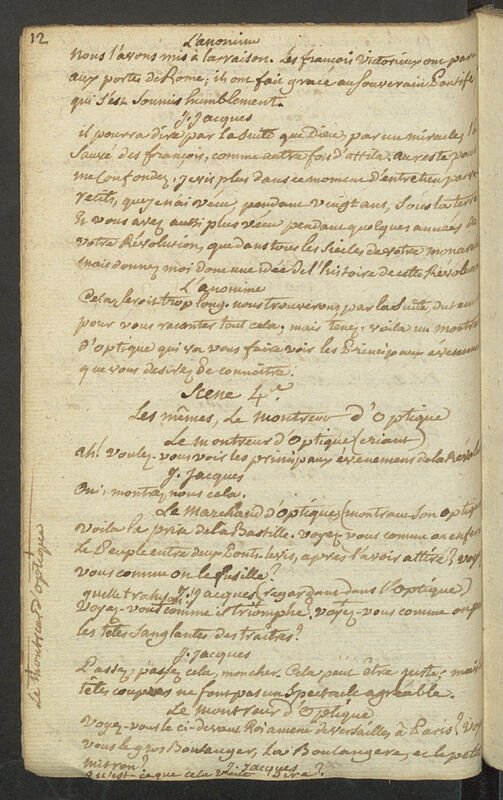 12
L'anonime
nous l'avons mis à la raison. Les françois victorieux ont paru
aux portes de Rome; ils ont fait grace au Souverain Pontife
qui s'est Soumis humblement.
J. Jacques
il pourra dire par la suite que Dieu, par un miracle, l'a
Sauvé des françois, comme autrefois d'attila. au reste vous
me Confondez. je vis plus dans ce moment d'entretien par vos
recits, que je n'ai vécu, pendant vingt ans, Sous la terre
& vous avez aussi plus vécu pendant quelques années de
votre Révolution, que dans tous les Siècles de votre monarchie
mais donnez moi donc une idée de l'histoire de cette Révolution
L'anonime
Cela seroit trop long. nous trouverons par la Suite, du tems
pour vous raconter tout cela; mais tenez, voila un montreur
d'Optique qui va vous faire voir les Principaux évènemens
que vous desirez de connoître.
Scene 4e.
Les mêmes, Le montreur d'Optique
Le montreur d'Optique (criant)
ah! voulez-vous voir les principaux évènemens de la Révolution
J. Jacques
Oui, montrez nous cela.
Le Marchand d'Optique (montrant Son Optique
voila la prise de la Bastille. voyez vous comme on enferme
le Peuple entre deux Ponts-levis, après l'avoir attiré? voyez
vous comme on le fusille?
J. Jacques (regardant dans l'Optique)
quelle trahison
Voyez-vous comme il triomphe? voyez-vous comme on porte
les têtes Sanglantes des traîtres?
J. Jacques
Passez, passez cela, mon cher. Cela peut être juste; mais des
têtes coupées ne font pas un Spectacle agréable.
Le montreur d'Optique
Voyez-vous le ci-devant Roi amené de Versailles, à Paris? voyez
vous le gros Boulanger, La Boulangere, et le petit
mitron?
J. Jacques
qu'est-ce que cela veut dire?
Le Montreur d'Optique